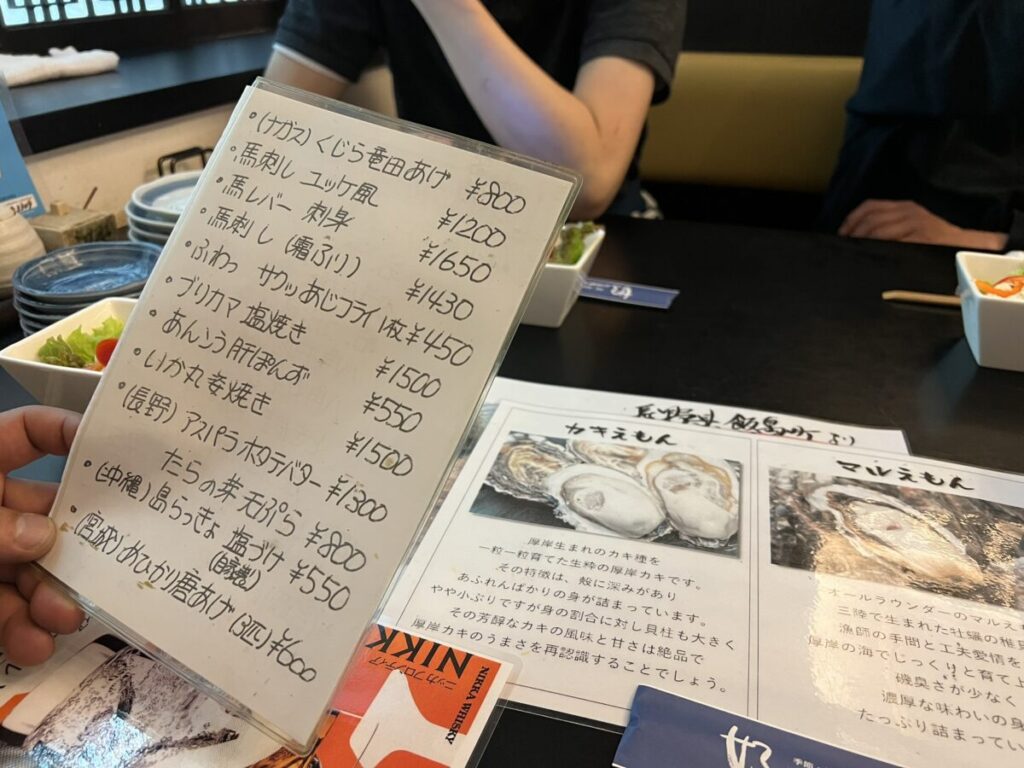 ・(ナガス) くじら竜田あげ ¥800
・馬刺し ユッケ風 ¥1200
・馬レバー 刺身 ¥1650
・馬刺し (霜ふり) ¥1430
・ふわっ サクッあじフライ 1枚 ¥450
・ブリカマ 塩焼き ¥1500
・あんこう肝ぽんず ¥550
・いか丸姿焼き ¥1500
・(長野) アスパラホタテバター ¥1300
たらの芽 天ぷら ¥800
・(沖縄) 島らっきょ 塩づけ ¥550
(自家製)
・(宮城) めひかり唐あげ (3匹) ¥600
より
カキえもん
厚岸生まれのカキ種を
一粒一粒育てた生粋の厚岸カキです。
その特徴は、殻に深みがあり
あふれんばかりの身が詰まっています。
やや小ぶりですが身の割合に対し貝柱も大きく
その芳醇なカキの風味と甘さは絶品で
厚岸カキのうまさを再認識することでしょう。
マルえもん
オールラウンダーのマルえ
三陸で生まれた牡蠣の稚貝
漁師の手間と工夫愛情を
厚岸の海でじっくりと育て上
磯臭さが少なく
濃厚な味わいの身
たっぷり詰まってい
ニッカ フロンティア
NIKK
NIKKA WHISKY
季節